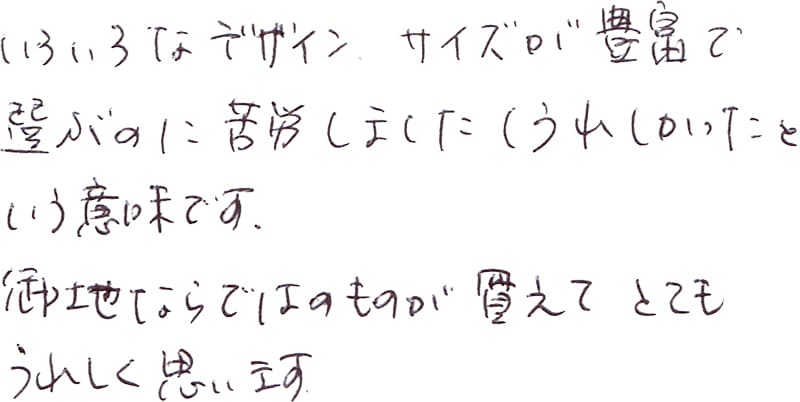 いろいろなデザイン、サイズが豊富で
選ぶのに苦労しました(うれしかったと
いう意味です。
御地ならではのものが買えて とても
うれしく思います